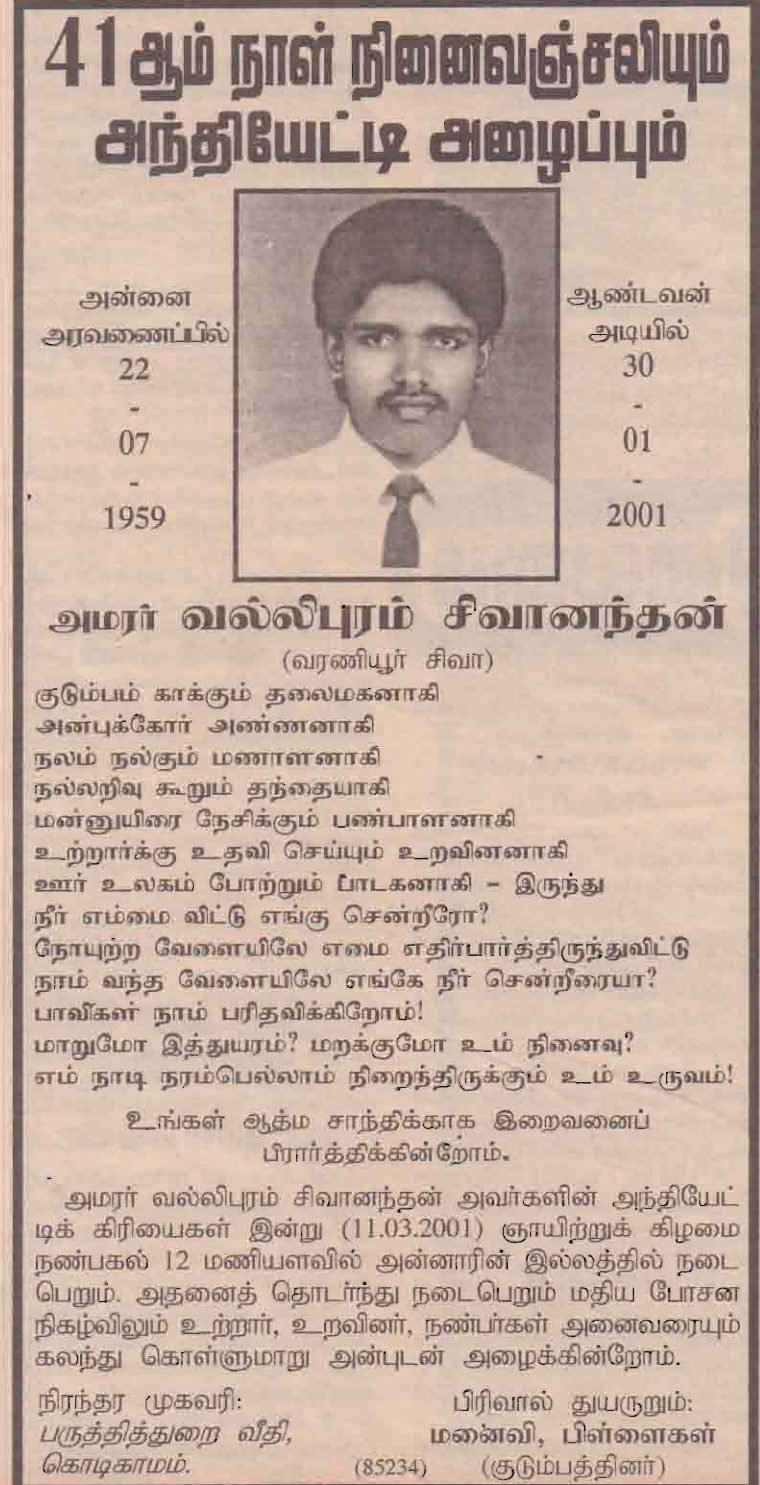 41ஆம் நாள் நினைவஞ்சலியும்
அந்தியேட்டி அழைப்பும்
அன்னை
அரவணைப்பில்
22
-
07
-
1959
ஆண்டவன்
அடியில்
30
-
01
-
2001
அமரர் வல்லிபுரம் சிவானந்தன்
(வரணியூர் சிவா)
குடும்பம் காக்கும் தலைமகனாகி
அன்புக்கோர் அண்ணனாகி
நலம் நல்கும் மணாளனாகி
நல்லறிவு கூறும் தந்தையாகி
மன்னுயிரை நேசிக்கும் பண்பாளனாகி
உற்றார்க்கு உதவி செய்யும் உறவினனாகி
ஊர் உலகம் போற்றும் பாடகனாகி – இருந்து
நீர் எம்மை விட்டு எங்கு சென்றீரோ?
நோயுற்ற வேளையிலே எமை எதிர்பார்த்திருந்துவிட்டு
நாம் வந்த வேளையிலே எங்கே நீர் சென்றீரையா?
பாவிகள் நாம் பரிதவிக்கிறோம்!
மாறுமோ இத்துயரம்? மறக்குமோ உம் நினைவு?
எம் நாடி நரம்பெல்லாம் நிறைந்திருக்கும் உம் உருவம்!
உங்கள் ஆத்ம சாந்திக்காக இறைவனைப்
பிரார்த்திக்கின்றோம்.
அமரர் வல்லிபுரம் சிவானந்தன் அவர்களின் அந்தியேட்
டிக் கிரியைகள் இன்று (11.03.2001) ஞாயிற்றுக் கிழமை
நண்பகல் 12 மணியளவில் அன்னாரின் இல்லத்தில் நடை
பெறும். அதனைத் தொடர்ந்து நடைபெறும் மதிய போசன
நிகழ்விலும் உற்றார், உறவினர், நண்பர்கள் அனைவரையும்
கலந்து கொள்ளுமாறு அன்புடன் அழைக்கின்றோம்.
நிரந்தர முகவரி:
பருத்தித்துறை வீதி,
கொடிகாமம்.
பிரிவால் துயருறும்:
மனைவி, பிள்ளைகள்
(85234) (குடும்பத்தினர்)